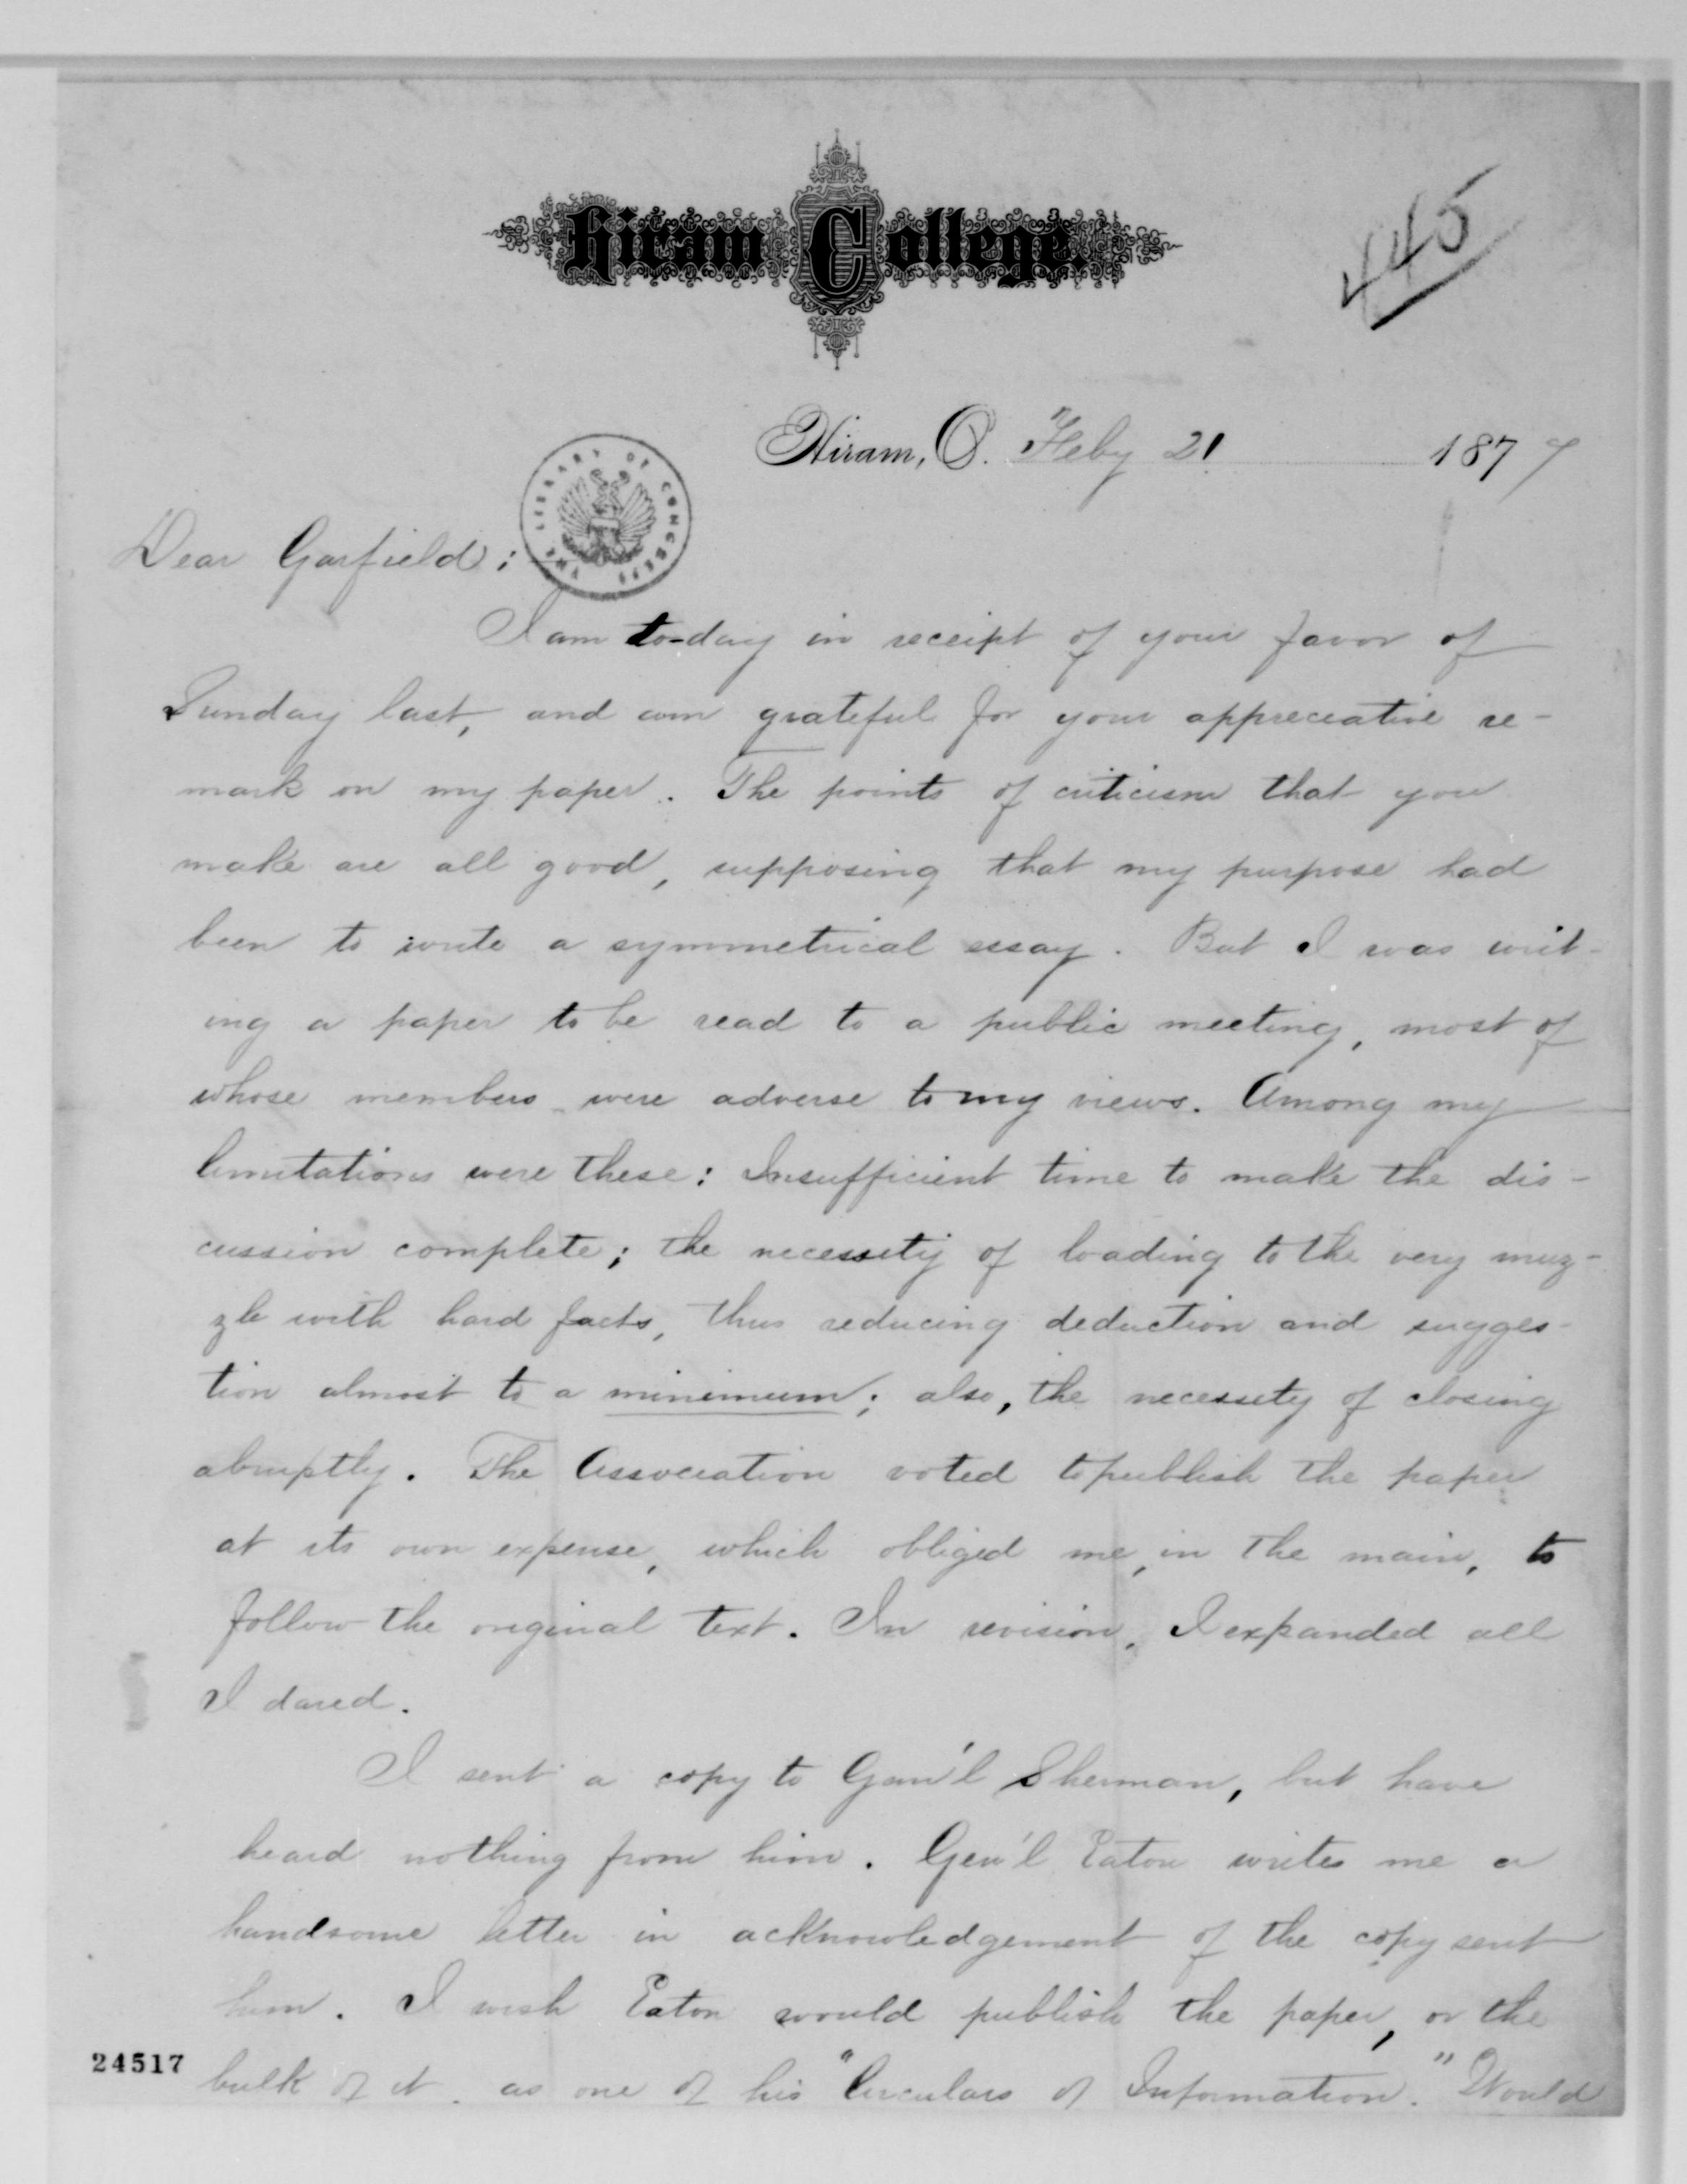 Hiram College
445
Hiram, O. Feby 21 1877
THE LIBRARY OF CONGRESS
Dear Garfield:
I am to-day in receipt of your favor of
Sunday last, and am grateful for your appreciative re-
mark on my paper. The points of criticism that you
make are all good, supposing that my purpose had
been to write a symmetrical essay. But I was writ-
ing a paper to be read to a public meeting, most of
whose members were adverse to my views. Among my
limitations were these: Insufficient time to make the dis-
cussion complete; the necessity of loading to the very muz-
zle with hard facts, thus reducing deduction and sugges-
tion almost to a minimum; also, the necessity of closing
abruptly. The Association voted to publish the paper
at its own expense, which obliged me, in the main, to
follow the original text. In revision, I expanded all
I dared.
I sent a copy to Gen'l Sherman, but have
heard nothing from him. Gen'l Eaton writes me a
handsome letter in acknowledgement of the copy sent
him. I wish Eaton would publish the paper, or the
bulk of it as one of his "Circulars of Information." Would
24517